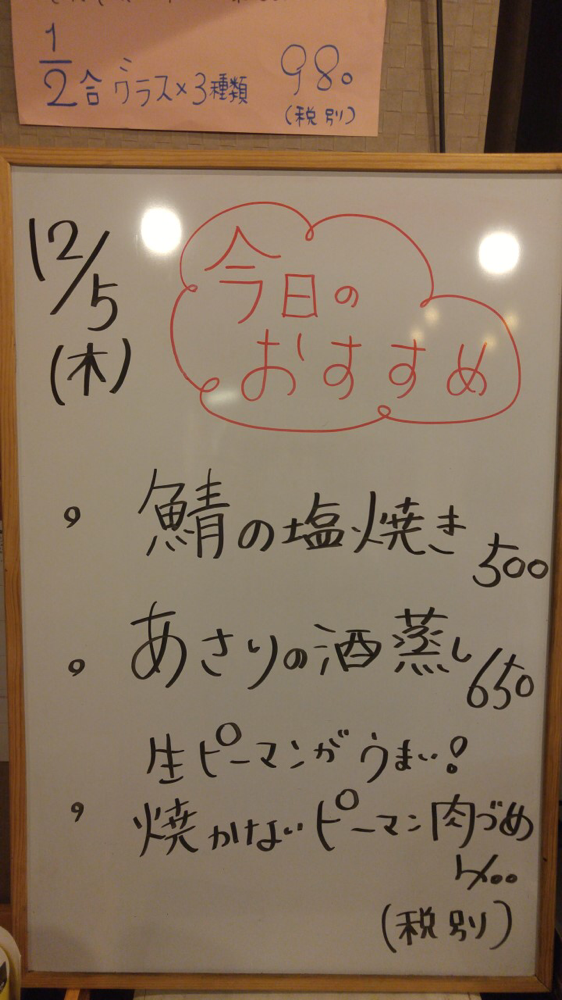 1/2合グラス×3種類 980
(税別)
12/5
(木)
今日の
おすすめ
鯖の塩焼き 500
あさりの酒蒸し 650
生ピーマンがうまい!
焼かないピーマン肉づめ
(税別)